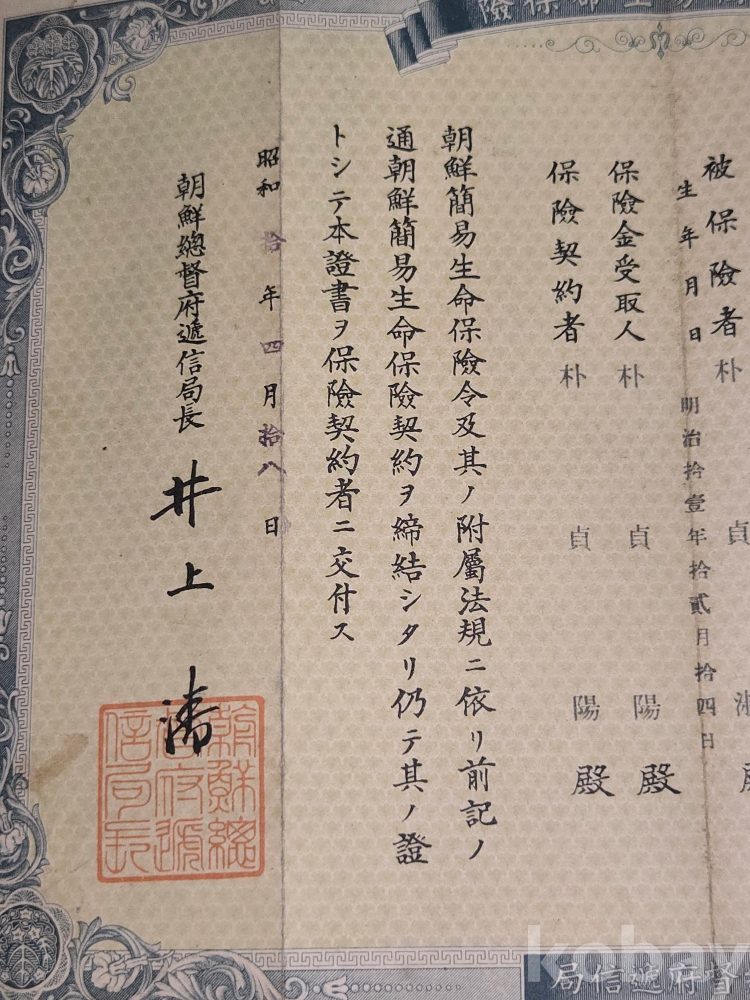 易生命保險
被保險者 朴 貞
生年月日 明治拾壹年拾貳月拾四日
保險金受取人 朴 貞 陽 殿
保險契約者 朴 貞 陽 殿
朝鮮簡易生命保險令及其ノ附屬法規ニ依リ前記ノ
通朝鮮簡易生命保險契約ヲ締結シタリ仍テ其ノ證
トシテ本證書ヲ保險契約者ニ交付ス
昭和拾年四月拾八日
朝鮮總督府遞信局長 井上 清
朝鮮總
督府遞
信局長
督府遞信局
kobay